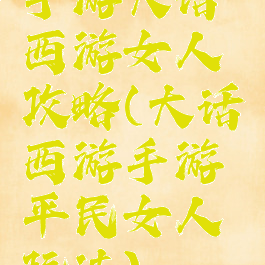 手游大话
西游女人
攻略(大话
西游手游
平民女人